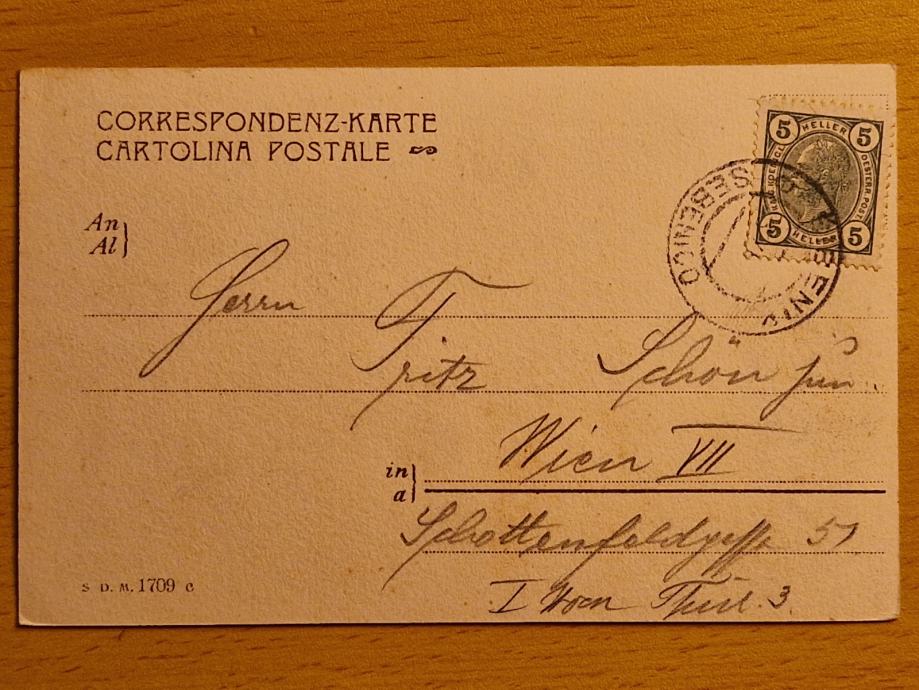 CORRESPONDENZ-KARTE
CARTOLINA POSTALE
5 HELLER 5
KAIS. KOENIGL. OESTERR. POST
5 HELLER 5
SEBENICO
An
Al
Herrn
Fritz Schön jun
Wien VII
in
a
Schottenfeldgasse 51
I Thür 3.
S. D. M. 1709 C